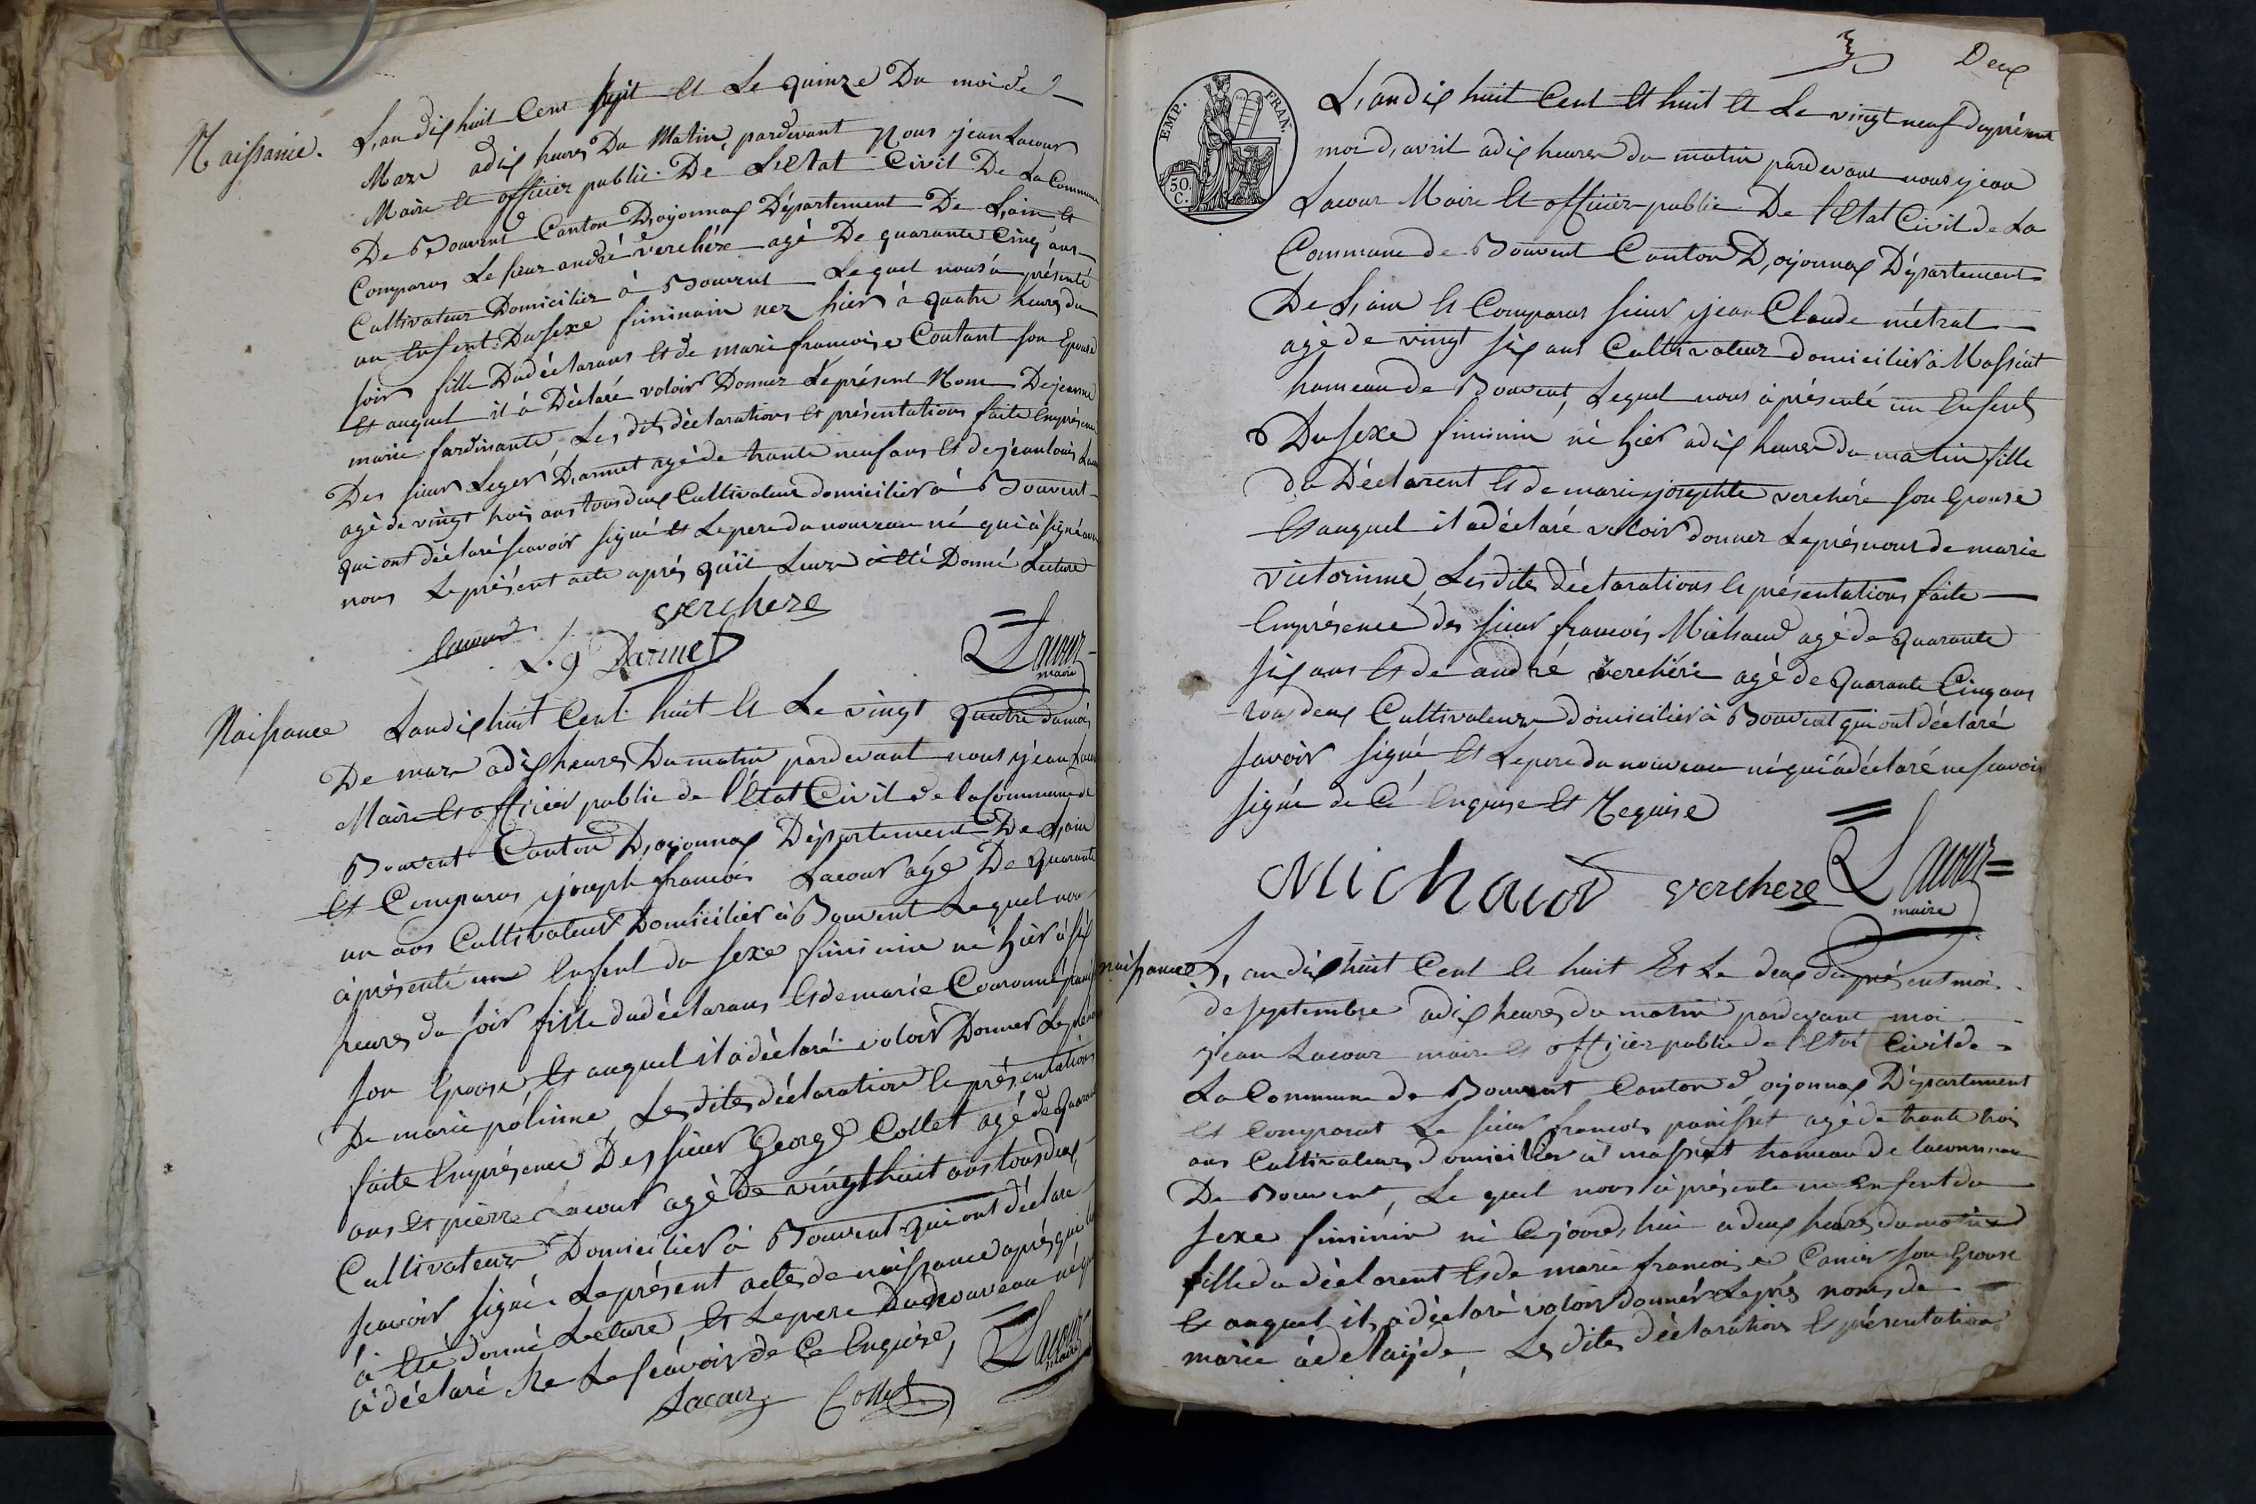 Naissance.
L,an dix huit Cent huit Et Le quinze Du moi de
Mars a dix heures Du Matin, pardevant Nous jean Lacour
Maire Et officier public De L'Etat Civil De La Commune
De Bouvent Canton D,oyonnax Département De L,ain Et
Comparus Le sieur andré verchére agé De quarante Cinq ans
Cultivateur Domicilier à Bouvent Lequel nous à présenté
un Enfent Du sexe féminain nez hier à quatre heures du
soir fille Du déclarans Et de marie francoise Coutant son Epouse
Et auquel il à Déclaré voloir Donner Le présent Nom De jeanne
marie fardinante Les dits déclarations Et présentations faite Enprésence
Des sieur Leger D,armet agé de trante neuf ans Et de jean louis
agé de vingt trois ans tous deux Cultivateur domicilier à Bouvent
qui ont déclaré scavoir signé Et Le pere du nouveau né qui à signé avec
nous Le présent acte aprés qu'il Leurs à Eté Donné Lecture
verchere
lacour
L.g Darmet
Lacour
maire
Naissance
Lan dix huit Cent huit Et Le vingt quatre du moi
De mars a dix heures Du matin pardevant nous jean Lacour
Maire Et officier public de l'Etat Civil de la Commune de
Bouvent Canton D,oyonnax Département De L,ain
Et Comparus joseph francois Lacour agé De quarante
un ans Cultivateur Domicilier à Bouvent Lequel nou
à présenté une Enfent du sexe féminin né hier à six
heures du soir fille du déclarans Et de marie Couronné
son Epouse Et auquel il à déclaré voloir Donner Le prénom
De marie poline, Les dites déclaration Et présentations
faite Enprésence Des sieur George Collet agé de quarante
ans Et pierre Lacour agé De vingt huit ans tous deux
Cultivateur Domicilier à Bouvent qui ont déclaré
scavoir signé Le présent acte de naissance aprés qui
à Eté donné Lecture Et Le pere Du nouveau né qui
à déclaré Ne Le scavoir de Ce Enquise,
Lacour
Collet
Lacour
maire
Deux
EMP. FRAN.
50.
C.
L,an dix huit Cent Et huit Et Le vingt neuf du présent
moi d,avril a dix heures du matin pardevant nous jean
Lacour Maire Et officier public De l'Etat Civil de La
Commune de Bouvent Canton D,oyonnax Département
De L,ain Et Comparus sieur jean Claude métral
agé de vingt six ans Cultivateur domicilier à Massiat
hameau de Bouvent, Lequel nous à présenté un Enfent
Du sexe féminin né hier a dix heures du matin fille
du Déclarent Et de marie josephte verchére son Epouse
Et auquel il a déclaré voloir donner Le présnom de marie
victorinne, Les dite déclarations Et présentations faite
Enprésence des sieur francois Michaud agé de quarante
six ans Et de andré verchére agé de quarante Cinq ans
tous deux Cultivateur domicilier à Bouvent qui ont déclaré
savoir signé Et Le pere du nouveau né qui à déclaré ne scavoir
signé de Cé Enquise Et Requise
Michaud
verchere
Lacour
maire
naissance
L,an dix huit Cent Et huit Et Le deux du présent moi
de septembre a dix heures du matin pardevant moi
jean Lacour maire Et officier public de l'Etat Civil de
La Commune de Bouvent Canton d'oyonnax Département
Et Comparut Le sieur francois panisset agé de trante trois
ans Cultivateur domicilier à massiat hameau de lacommune
De Bouvent, Le quel nous à présente un Enfent du
sexe féminin né Cejourd,hui a deux heures du matin
fille du déclarent Et de marie francoise son Epouse
Et auquel il à déclaré voloir donner Le prés noms de
marie àdelayde, Les dites déclaration Et présentation